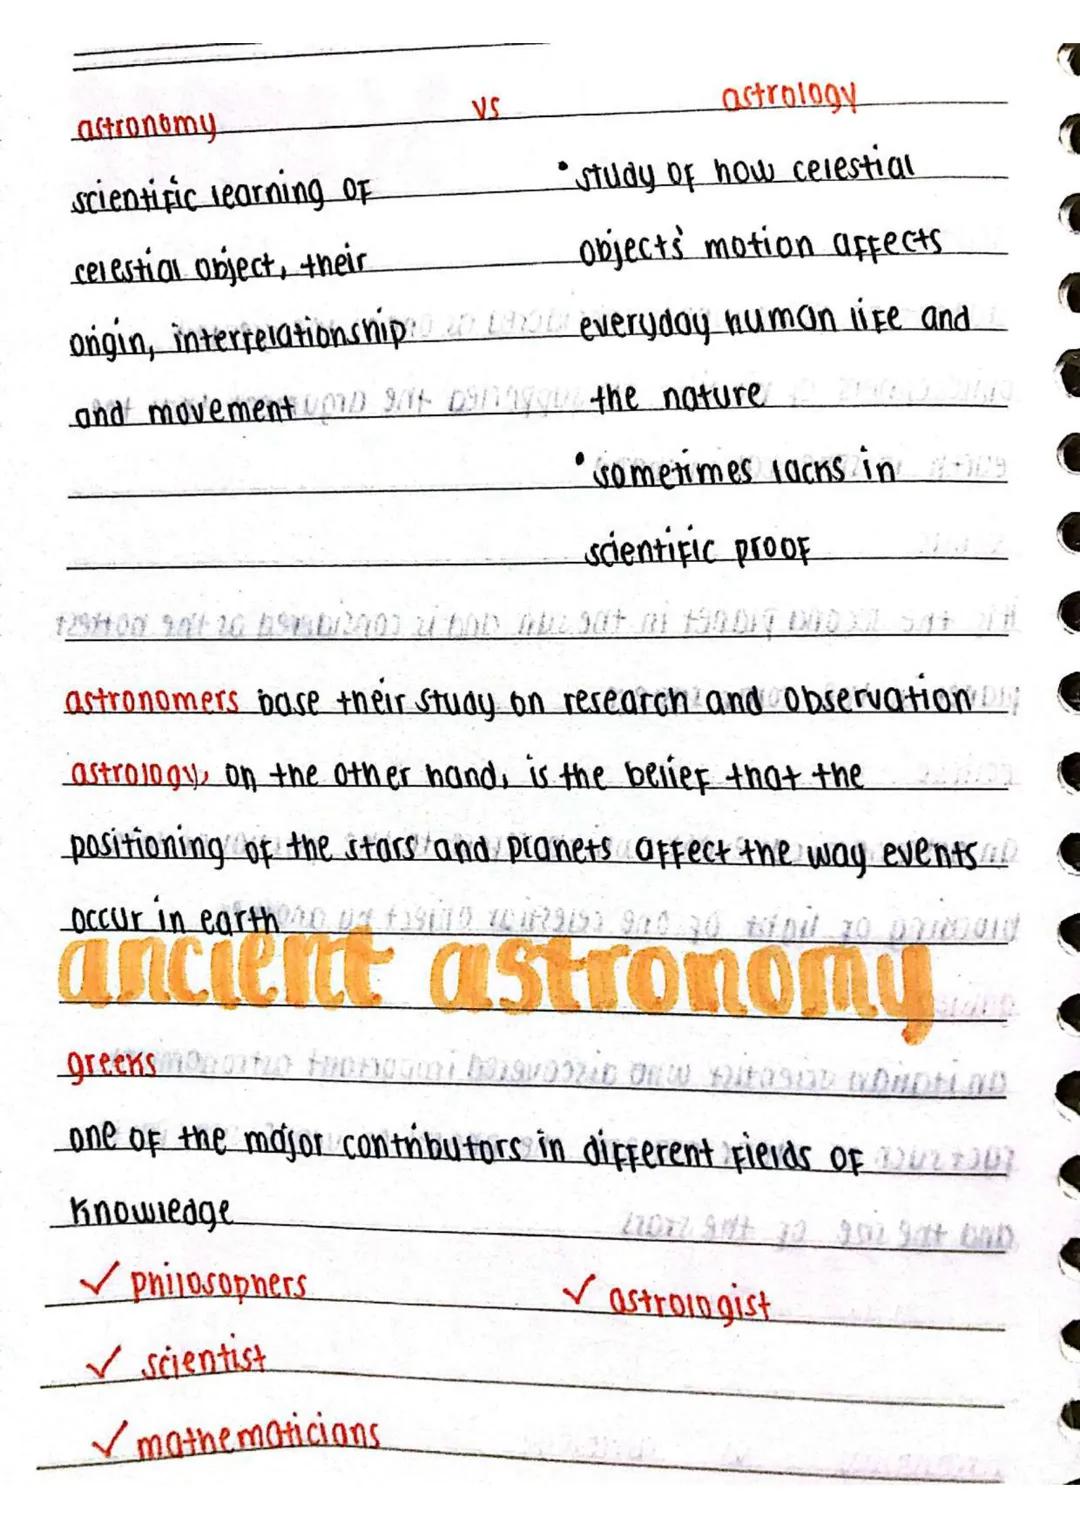 astronomy vs astrology
scientific learning of
celestial object, their
origin, interrelationship
and movement
•study of how celestial
objects' motion affects
everyday human life and
the nature
•sometimes lacks in
scientific proof
astronomers base their study on research and observation
astrology, on the other hand, is the belief that the
positioning of the stars and planets affect the way events
occur in earth
ancient astronomy
greeks
one of the major contributors in different fields of
knowledge
✓ philosophers ✓ astrologist
✓ scientist
✓ mathematicians